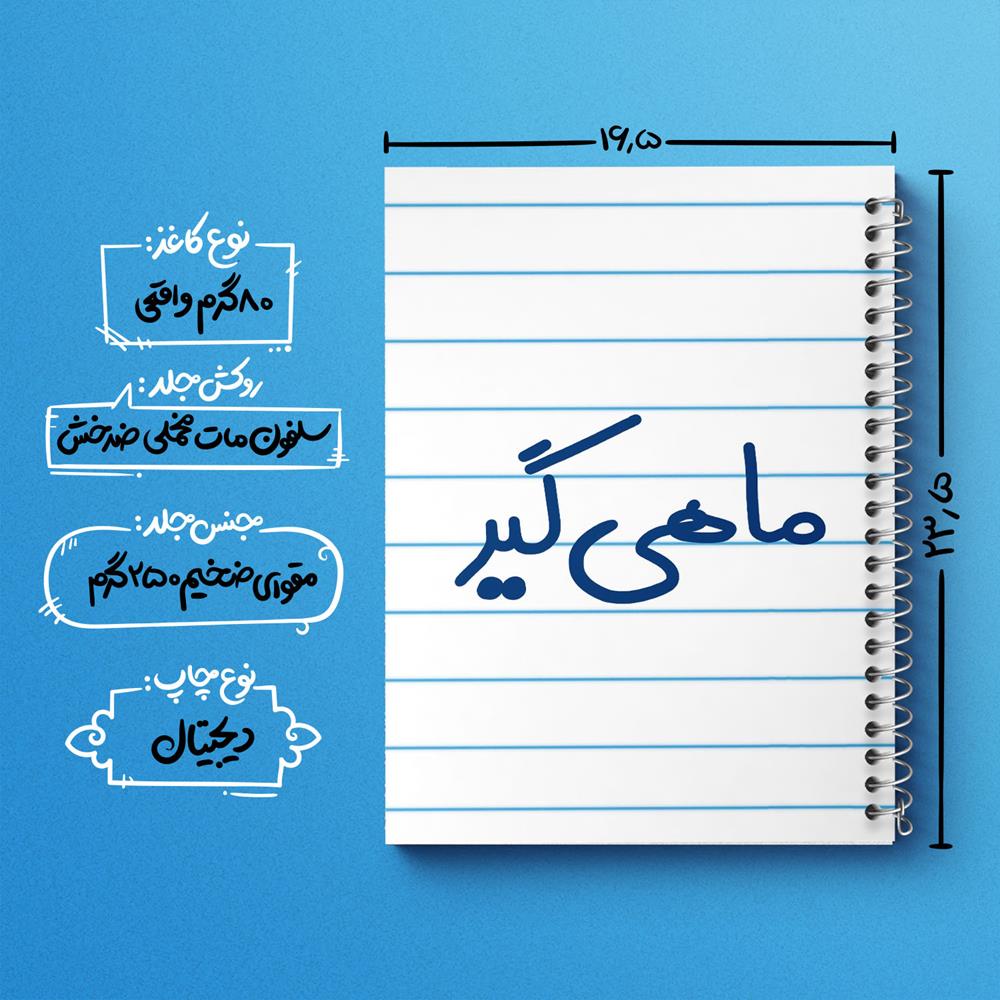 ۱۶,۵
نوع کاغذ:
۸۰ گرم واقعی
روکش جلد:
سلفون مات مخملی ضدخش
جنس جلد:
مقوای ضخیم ۲۵۰ گرم
نوع چاپ:
دیجیتال
ماهی گیر
۲۳,۵